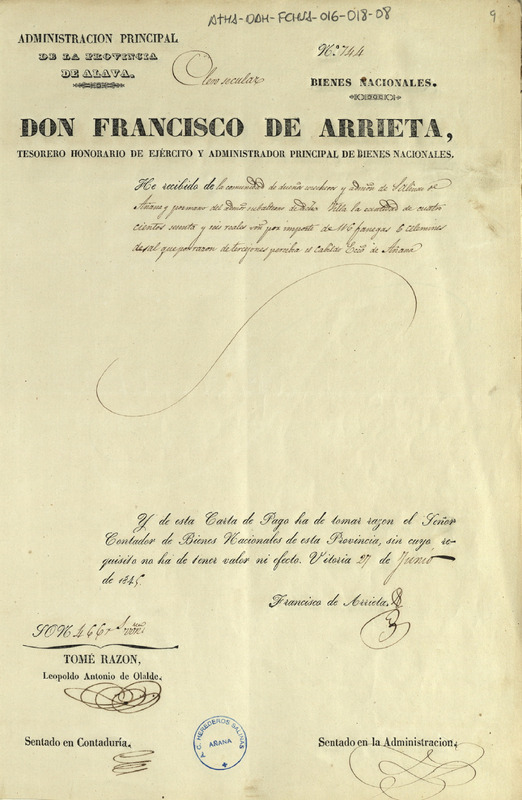 ATHA-DAH-FCHSA-016-018-08
9
ADMINISTRACION PRINCIPAL
DE LA PROVINCIA
DE ALAVA.
Clero secular
N.º 744
BIENES NACIONALES.
DON FRANCISCO DE ARRIETA,
TESORERO HONORARIO DE EJÉRCITO Y ADMINISTRADOR PRINCIPAL DE BIENES NACIONALES.
He recibido de la comunidad de dueños y admon de Salinas de
Añana y por mano del subalterno de dicha Villa la cantidad de cuatro
cientos sesenta y seis reales von por importe de 116 fanegas 6 celemines
de sal que por razon de percibia el Cabildo Eco de Añana
Y de esta Carta de Pago ha de tomar razon el Señor
Contador de Bienes Nacionales de esta Provincia, sin cuyo re-
quisito no ha de tener valor ni efecto. Vitoria 27 de Junio
de 1845.
Francisco de Arrieta.
SON 466 rs von
TOMÉ RAZON,
Leopoldo Antonio de Olalde.
A.C. HEREDEROS SALINAS
AÑANA
Sentado en Contaduría.
Sentado en la Administracion.